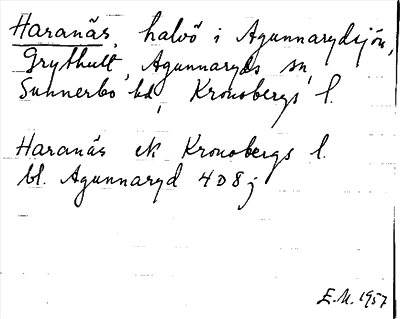 Haranäs, halvö i Agunnarydsjön,
Grythult, Agunnaryds sn,
Sunnerbo hd, Kronobergs l.
Haranäs ek Kronobergs l.
bl. Agunnaryd 4D8j
E.M. 1957